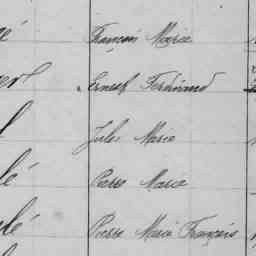 François Marie
Ernest Ferdinand
Jules Marie
lé Pierre Marie
lé Pierre Marie François